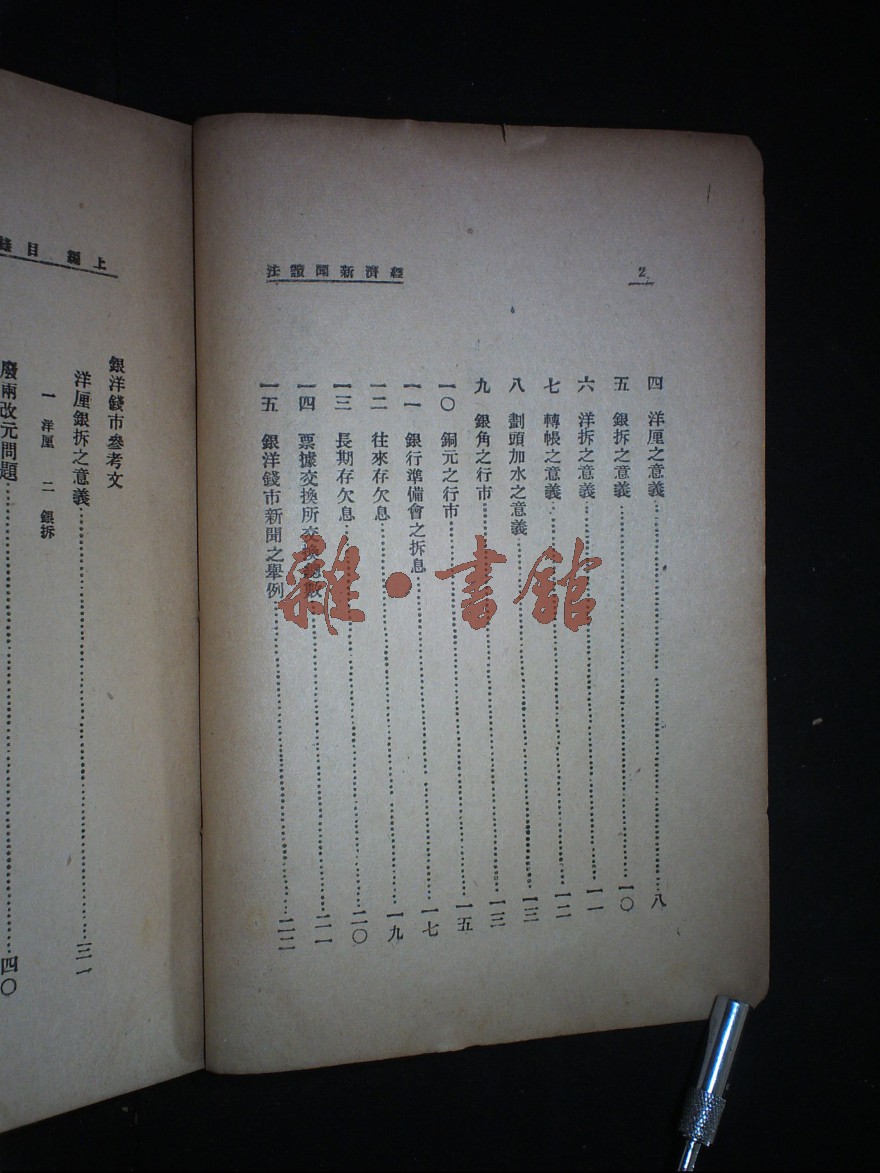 2
經濟新聞讀法
四 洋厘之意義……八
五 銀拆之意義……一〇
六 洋拆之意義……一一
七 轉帳之意義……一二
八 劃頭加水之意義……一三
九 銀角之行市……一三
一〇 銅元之行市……一五
一一 銀行準備會之拆息……一七
一二 往來存欠息……一九
一三 長期存欠息……二〇
一四 票據交換所交換總數……二一
一五 銀洋錢市新聞之舉例……二二
上編 目錄
銀洋錢市參考文
洋厘銀拆之意義……三一
一 洋厘 二 銀拆
廢兩改元問題……四〇
雜·書館